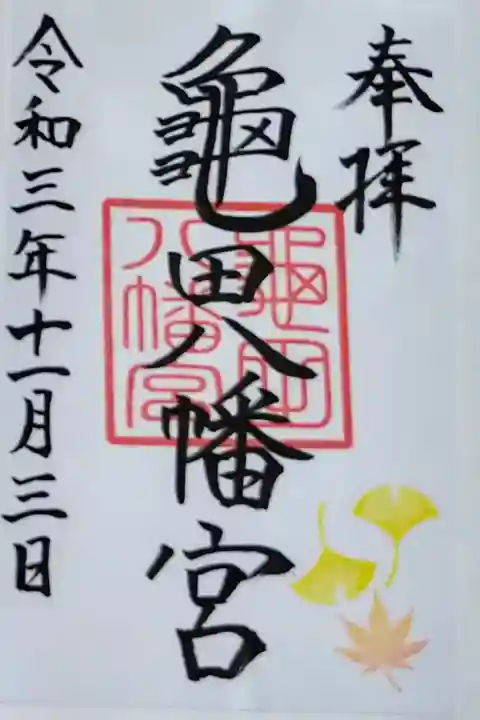 奉拝
龜田八幡宮
龜田
八幡宮
令和三年十一月三日